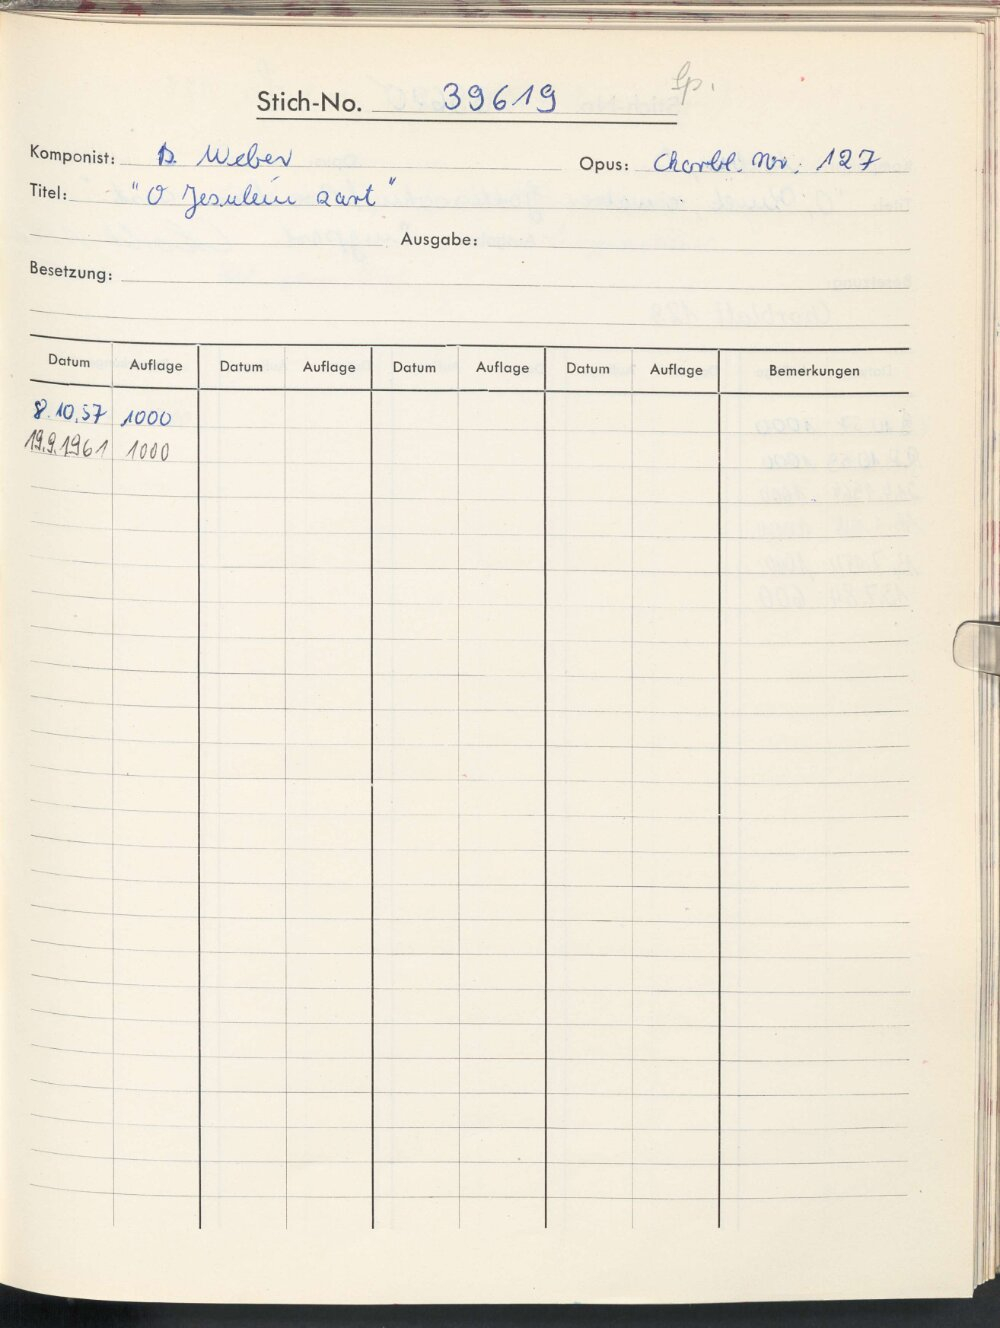 Sp.
Stich-No. 39619
Komponist: B. Weber Opus: Chorbl. Nr. 127
Titel: "O Jesulein zart"
Ausgabe:
Besetzung:
Datum Auflage Datum Auflage Datum Auflage Datum Auflage Bemerkungen
8.10.57 1000
19.9.1961 1000